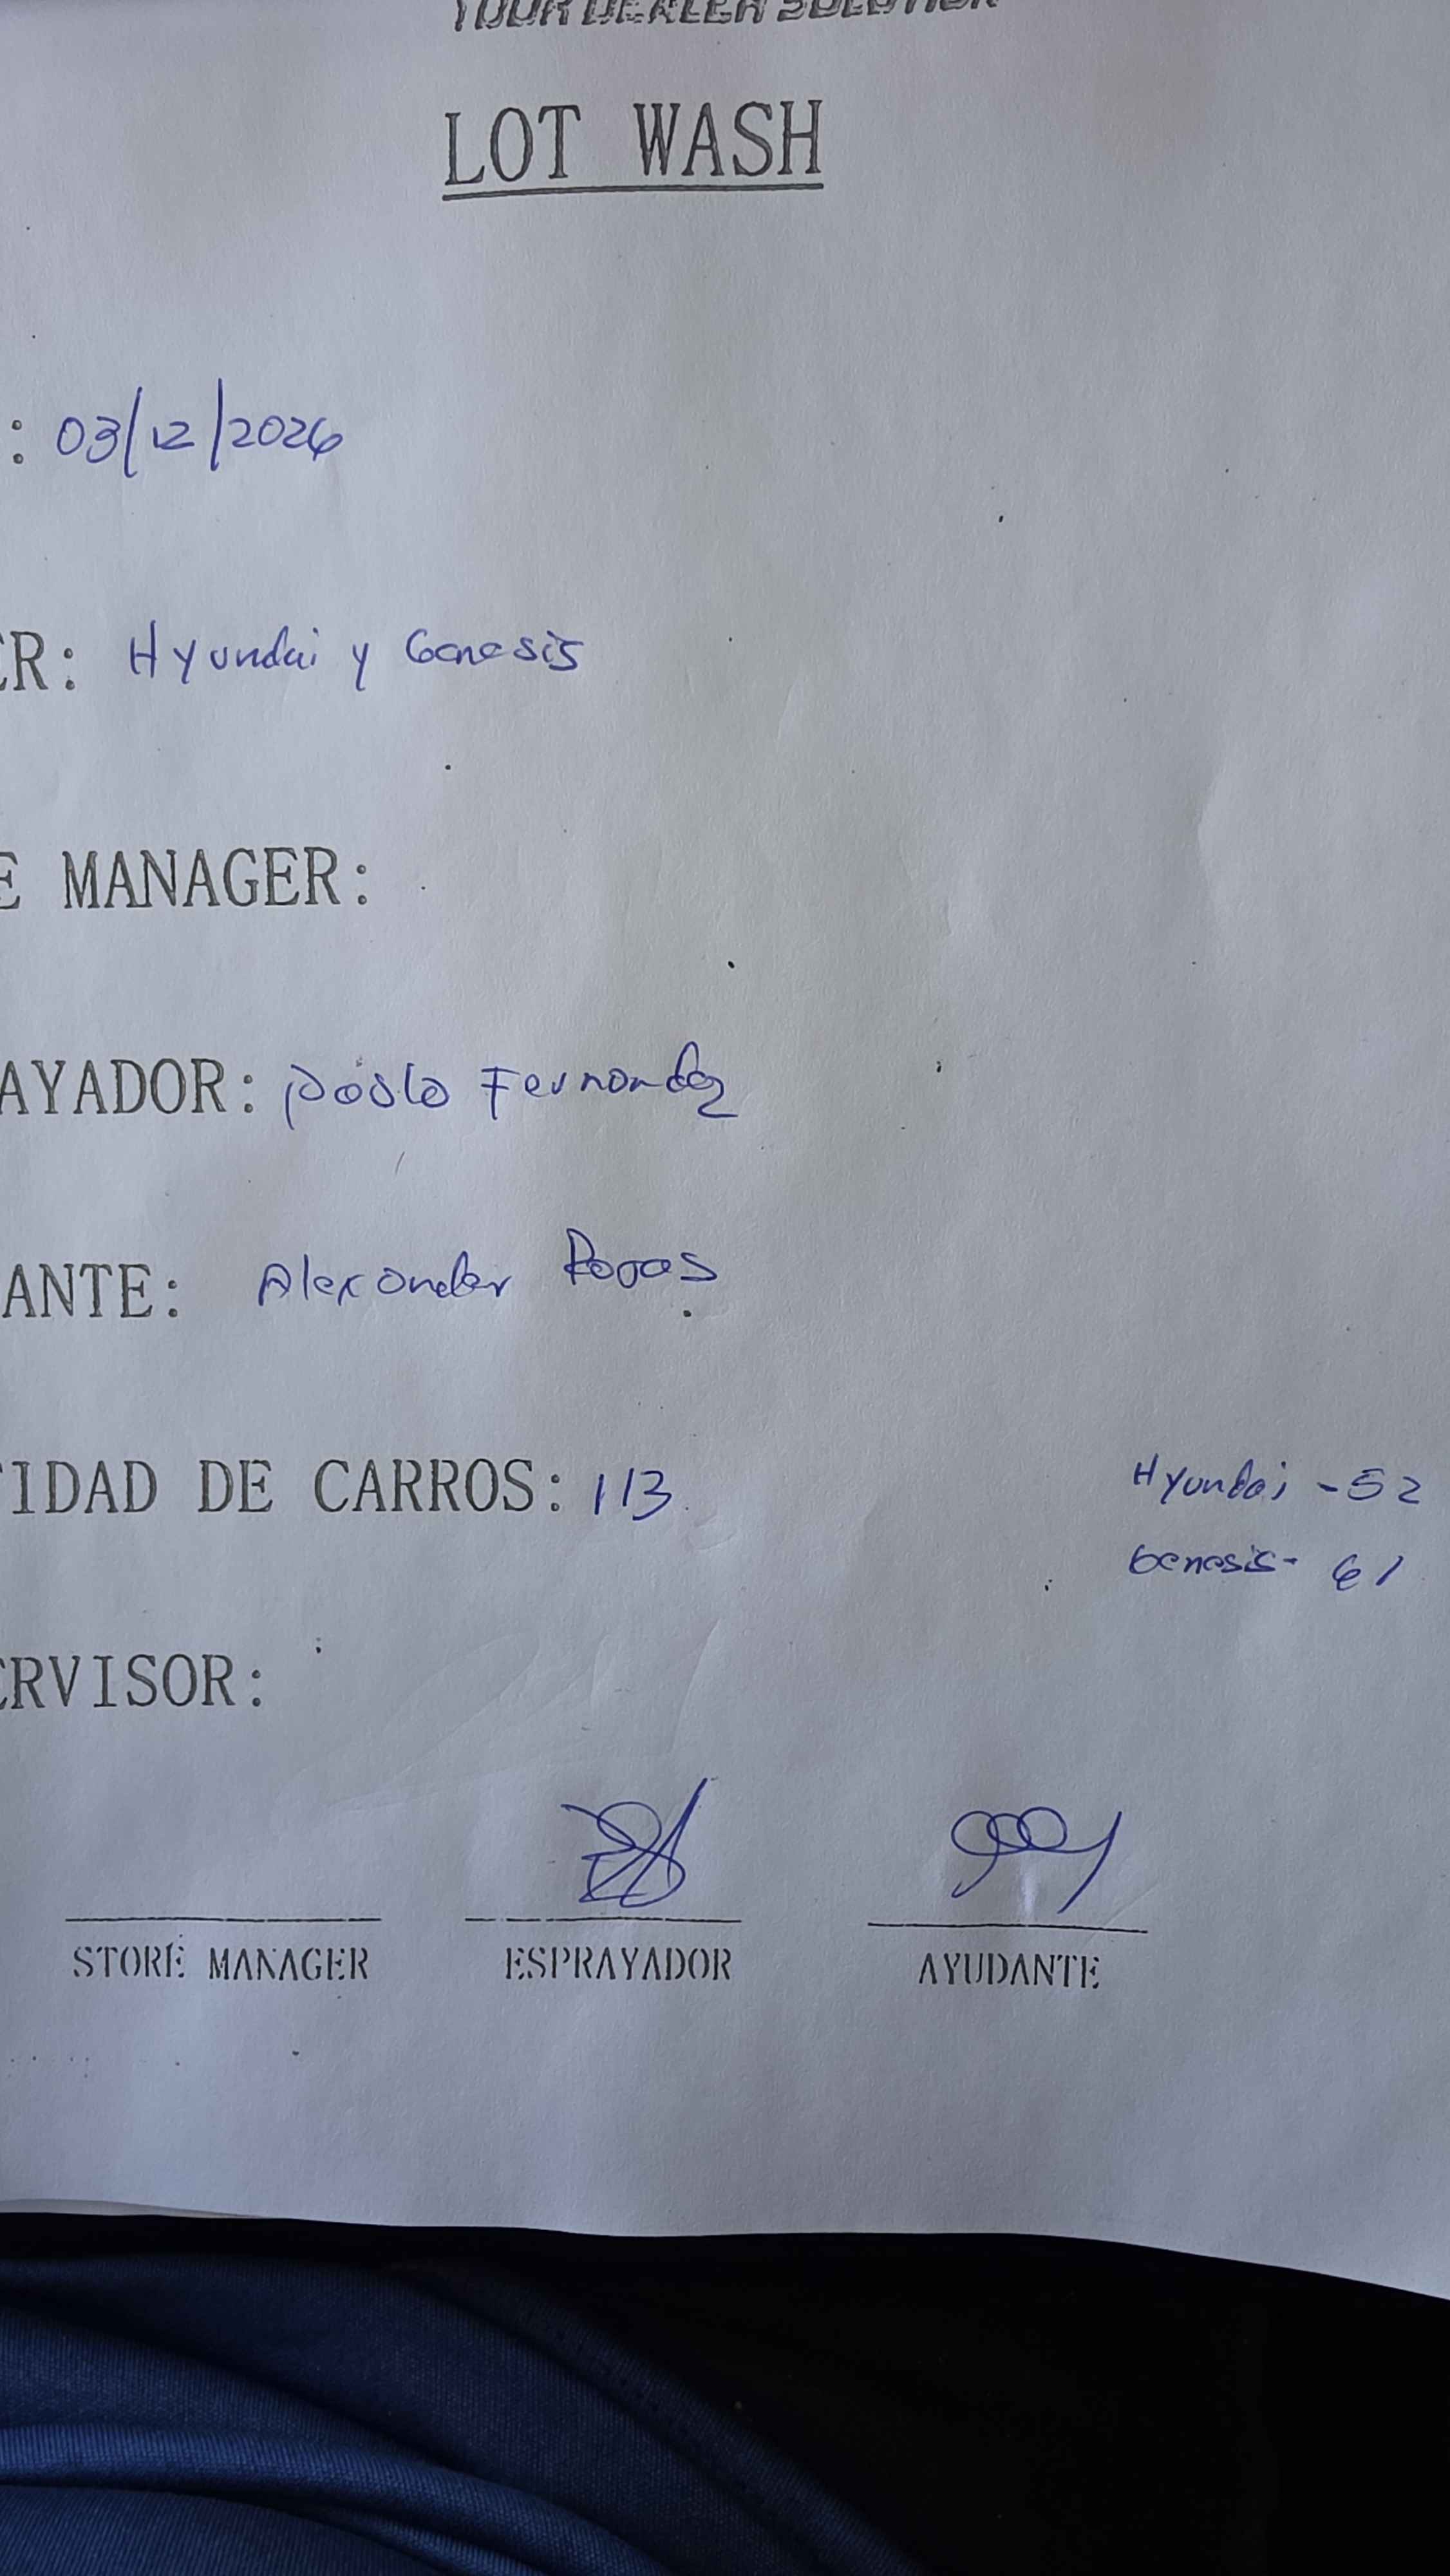 YOUR DEALER SOLUTION
LOT WASH
: 03/12/2026
ER: Hyundai y Genesis
E MANAGER:
AYADOR: pablo Fernandez
ANTE: Alexander Rojas
TIDAD DE CARROS: 113
Hyundai - 52
Genesis - 61
ERVISOR:
STORE MANAGER ESPRAYADOR AYUDANTE